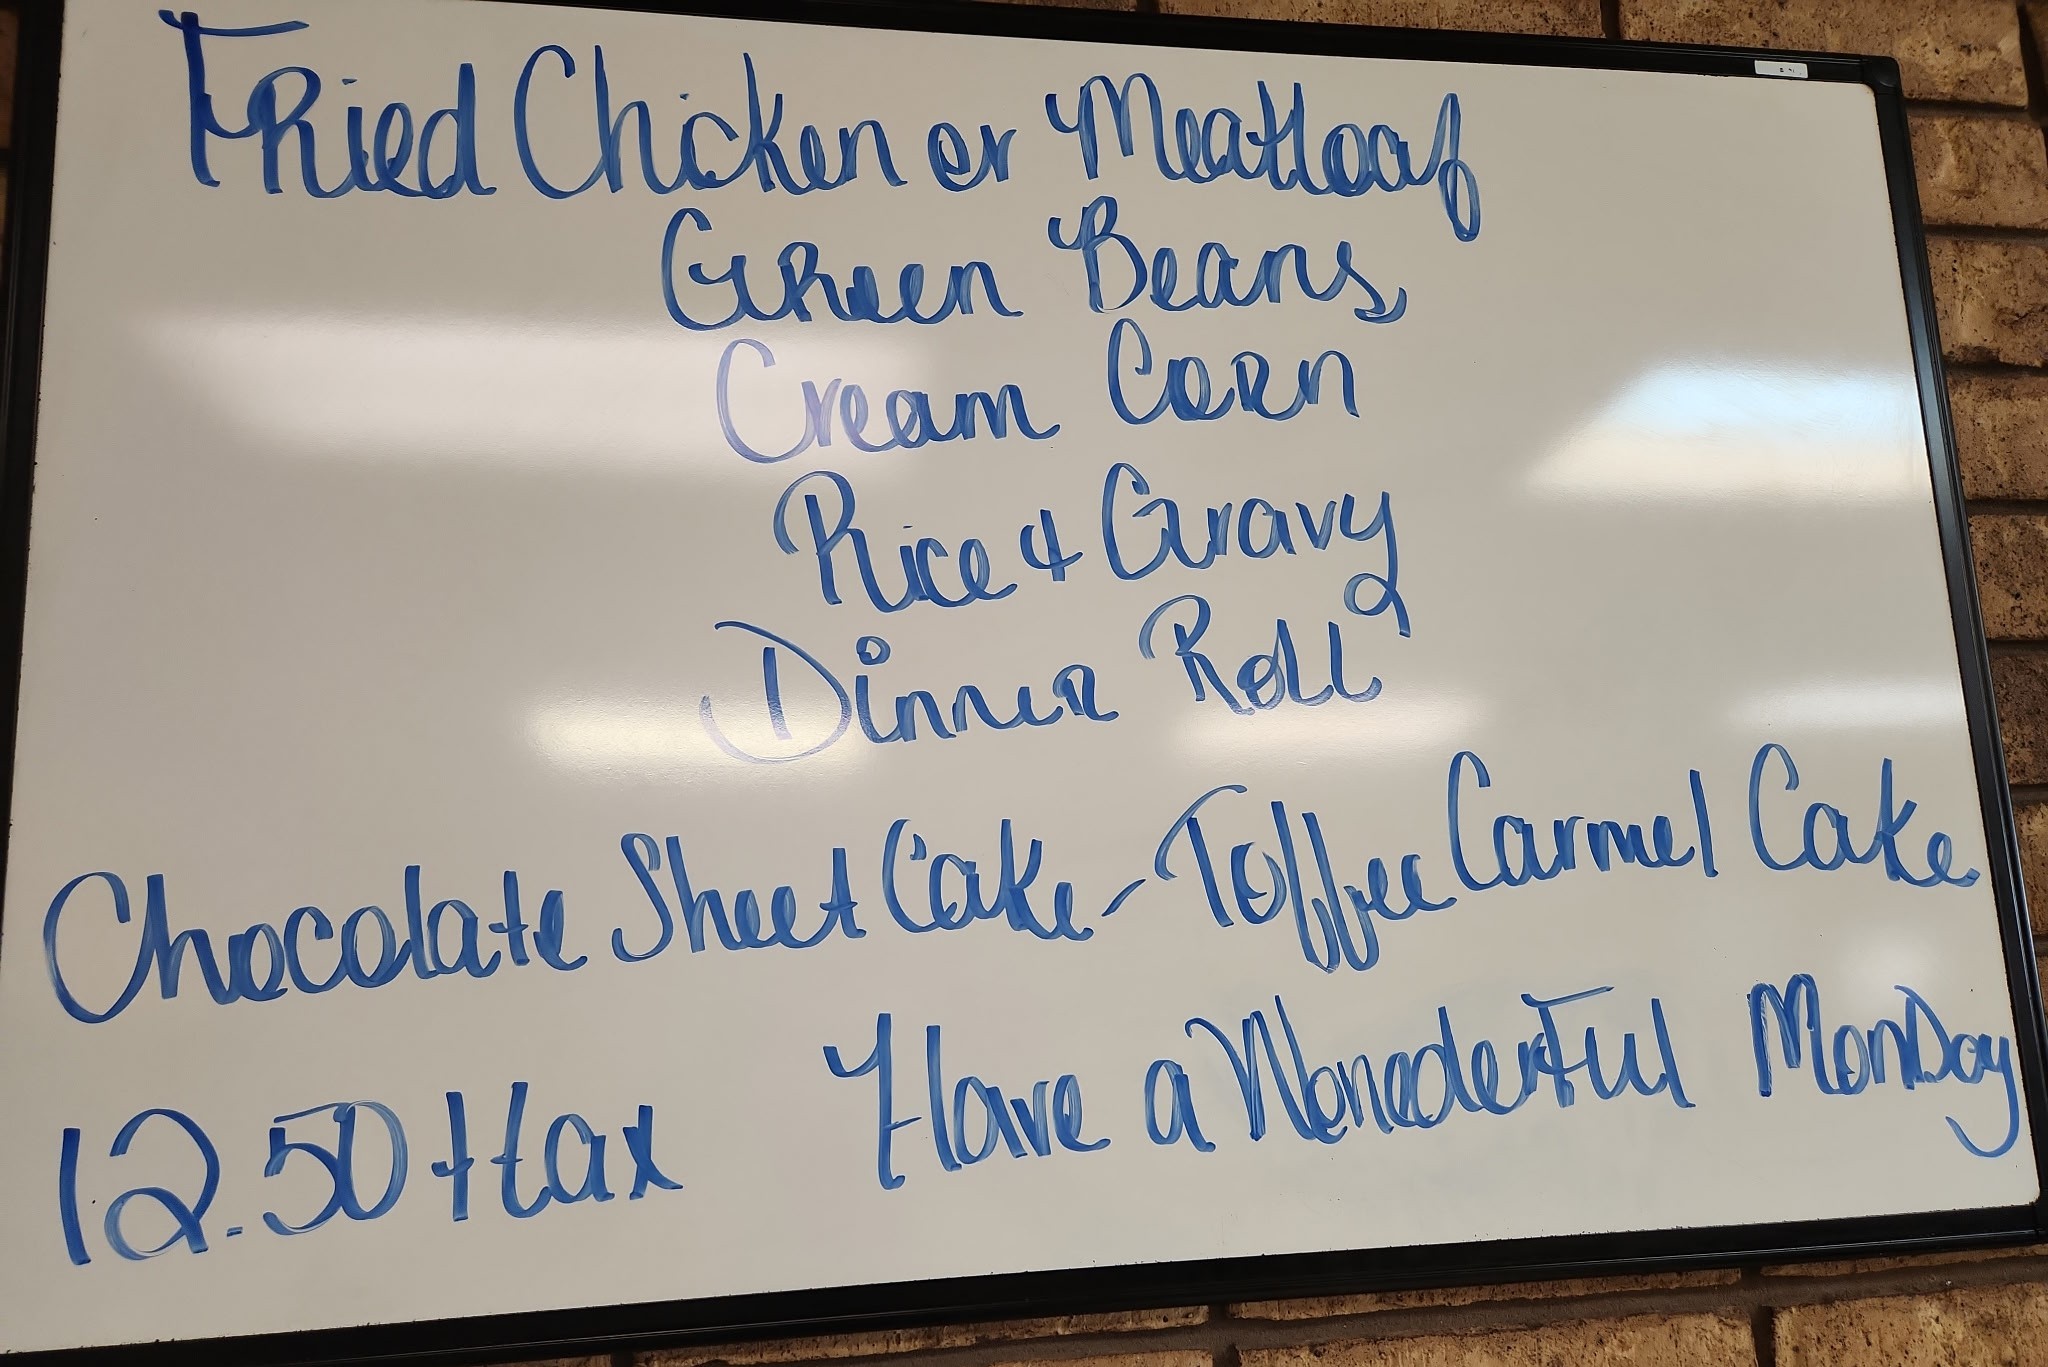 Fried Chicken or Meatloaf
Green Beans
Cream Corn
Rice & Gravy
Dinner Roll
Chocolate Sheet Cake - Toffee Carmel Cake
12.50 + tax Have a Wonederful MonDay